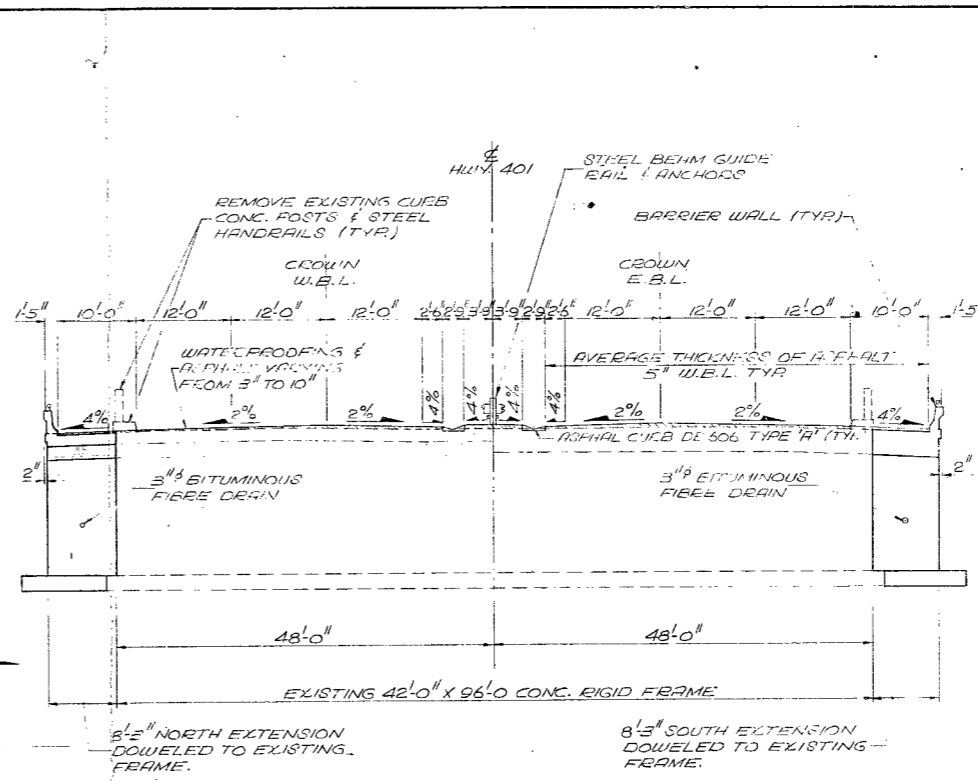 ℄
HWY. 401
STEEL BEAM GUIDE
RAIL & ANCHORS
REMOVE EXISTING CURB
CONC. POSTS & STEEL
HANDRAILS (TYP.)
BARRIER WALL (TYP.)
CROWN
W.B.L.
CROWN
E.B.L.
1'-5" 10'-0" 12'-0" 12'-0" 12'-0" 2'-6" 2'-9" 3'-9" 3'-9" 2'-9" 2'-6" 12'-0" 12'-0" 12'-0" 10'-0" 1'-5
WATERPROOFING &
ASPHALT VARYING
FROM 3" TO 10"
AVERAGE THICKNESS OF ASPHALT
5" W.B.L. TYP.
4% 2% 2% 4% 4% 4% 4% 2% 2% 4%
ASPHAL CURB DD 606 TYPE 'A' (TYP.
2" 3"ϕ BITUMINOUS
FIBRE DRAIN
3"ϕ BITUMINOUS
FIBRE DRAIN
2"
48'-0" 48'-0"
EXISTING 42'-0" X 96'-0 CONC. RIGID FRAME
8'-3" NORTH EXTENSION
DOWELED TO EXISTING
FRAME.
8'-3" SOUTH EXTENSION
DOWELED TO EXISTING
FRAME.